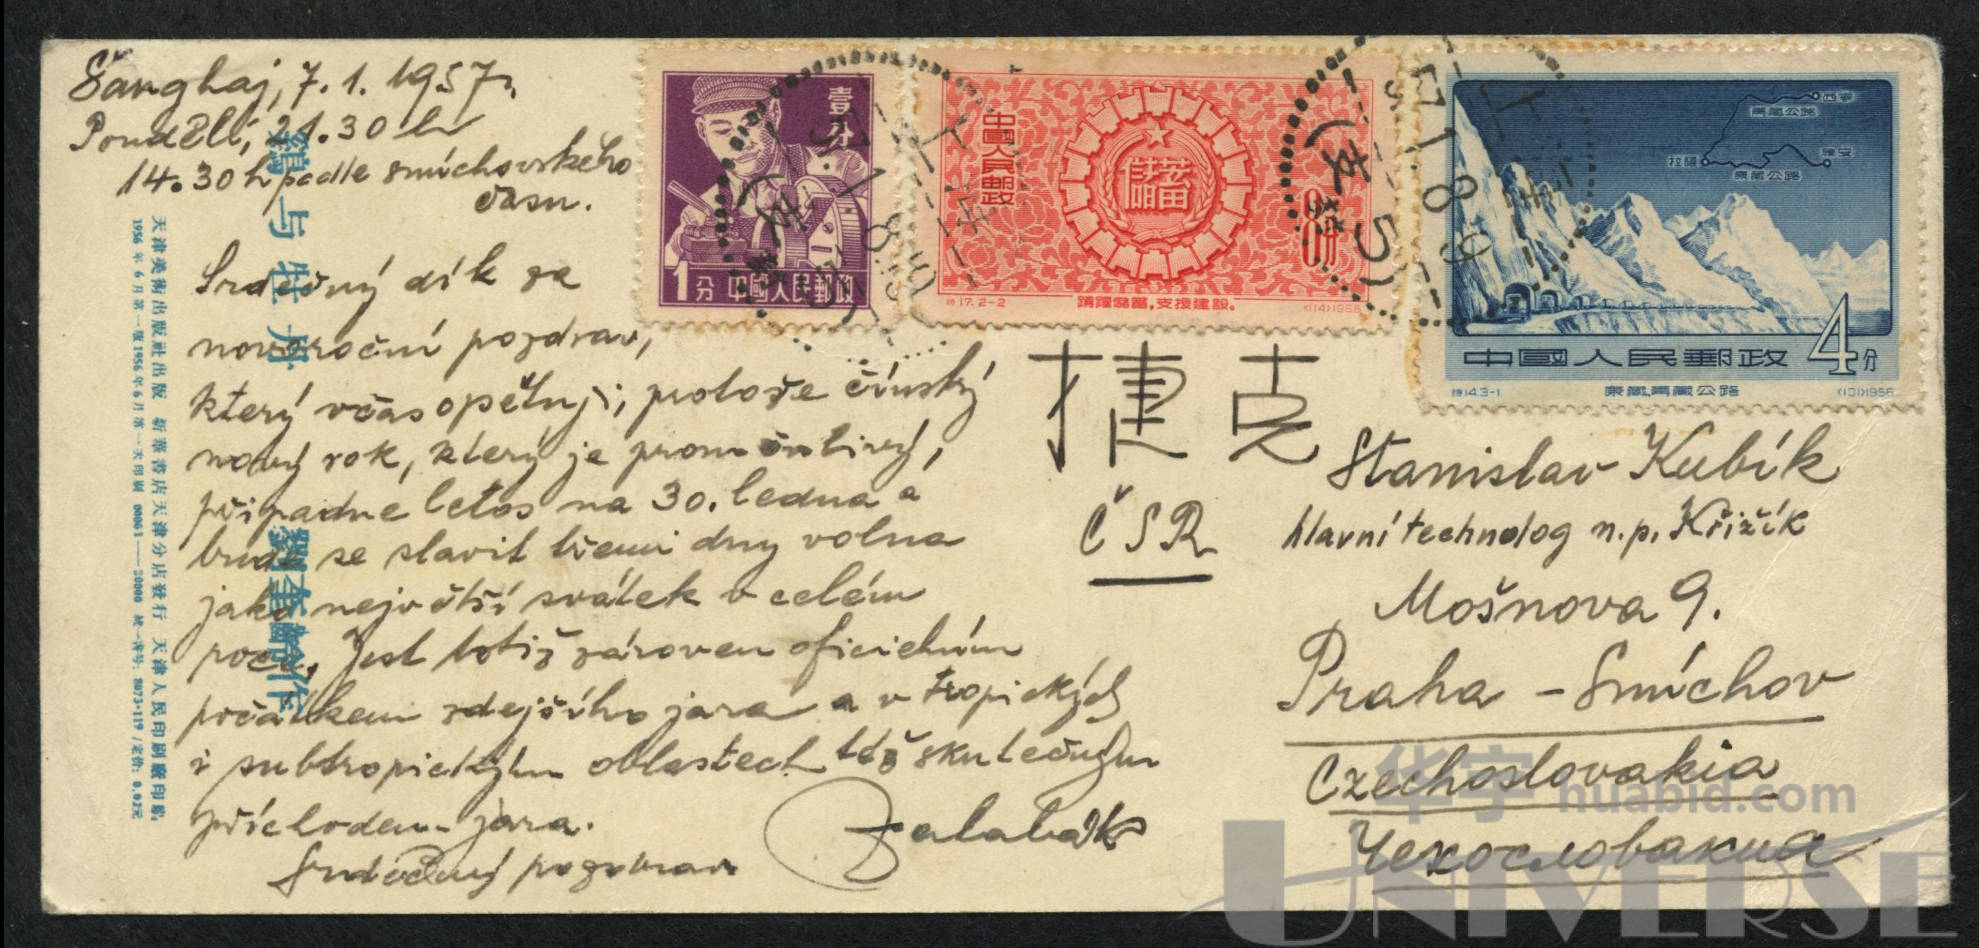 Šanghaj, 7. 1. 1957,
Pondělí, 21.30 h
14.30 h podle smíchovského
času.
Srdečný dík za
novoroční pozdrav,
který včas opětuji, protože čínský
nový rok, který je proměnlivý,
připadne letos na 30. ledna a
bude se slavit třemi dny volna
jako největší svátek v celém
roce. Jest totiž zároven oficielním
počátkem zdejšího jara a v tropických
i subtropických oblastech též skutečným
příchodem jara.
Srdečný pozdrav
與牡丹
劉奎齡作
天津美術出版社出版 新華書店天津分店發行 天津人民印刷廠印刷
1956年6月第一版 1956年6月第一次印刷 00001—20000 統一書号: 8073·119 /定价: 0.02元
壹分
1分 中國人民郵政
中國人民郵政
儲蓄
8分
特17. 2-2
踴躍儲蓄,支援建設。
(114)1956
57.1.8.9
上海
(支5)
西寧
青藏公路
拉薩
雅安
康藏公路
中國人民郵政
4分
特14.3-1
康藏青藏公路
(101)1956
捷克
ČSR
Stanislav Kubík
hlavní technolog n.p. Křižík
Mošnova 9.
Praha - Smíchov
Czechoslovakia
Чехословакиа
华宇 huabid.com
UNIVERSE